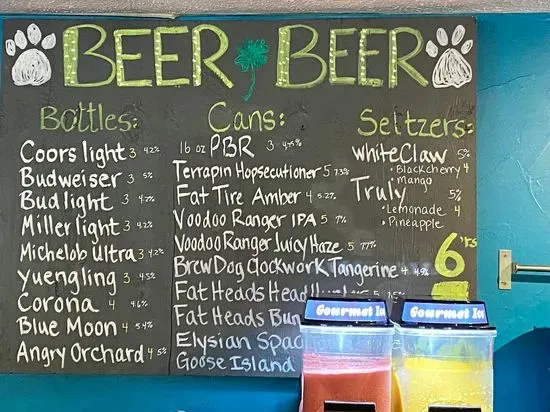 BEER BEER
Bottles:
Coors light 3 4.2%
Budweiser 3 5%
Bud light 3 4.2%
Miller light 3 4.2%
Michelob Ultra 3 4.2%
Yuengling 3 4.5%
Corona 4 4.6%
Blue Moon 4 5.4%
Angry Orchard 4 5%
Cans:
16 oz PBR 3
Terrapin Hopsecutioner 5 7.3%
Fat Tire Amber 4 5.2%
Voodoo Ranger IPA 5 7%
Voodoo Ranger Juicy Haze 5 7.7%
BrewDog Clockwork Tangerine 4 4.5%
Fat Heads
Fat Heads
Elysian
Goose Island
Seltzers:
White Claw 5%
• Black cherry 4
• Mango
Truly 5%
• Lemonade 4
• Pineapple
6
Gourmet
Gourmet